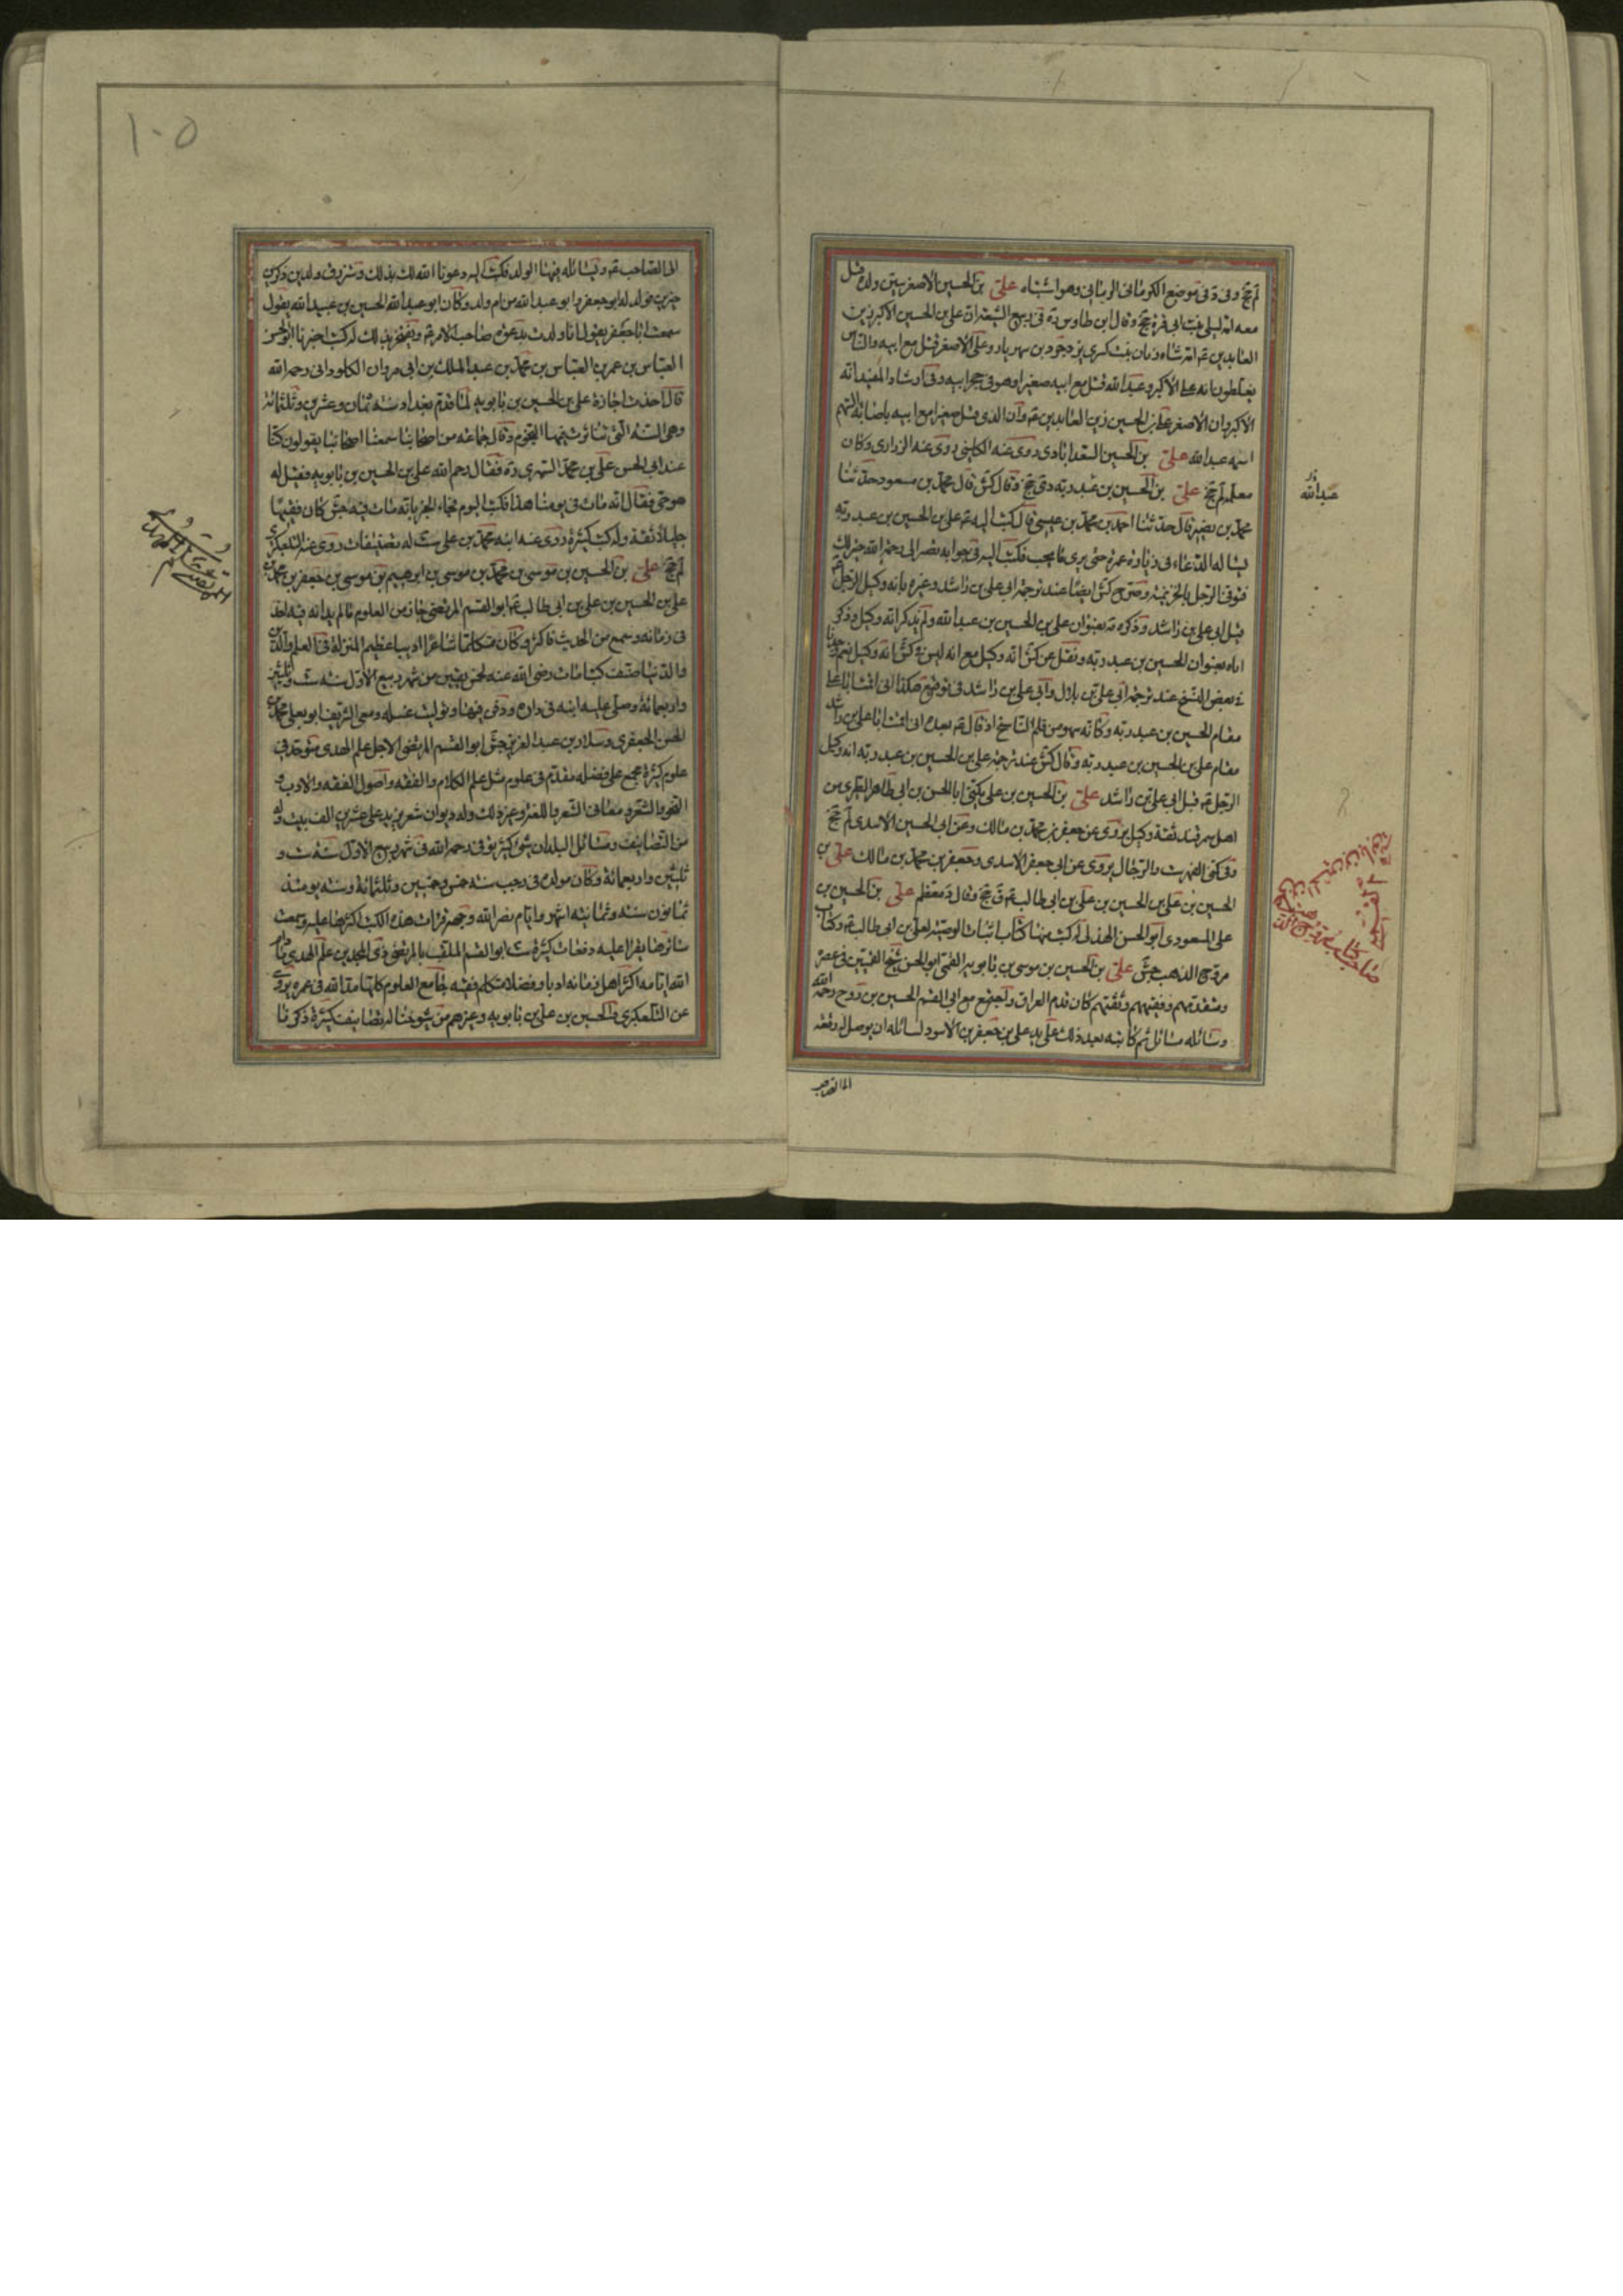 لم جخ وفى د فى موضع الكرمانى الربانى وهو اشتباه على بن الحسين الأصغر سين ولده قتل
معه امه ليلى بنت ابى قرة جخ وقال ابن طاوس ره فى ربيع الشيعة ان على بن الحسين الاكبر زين
العابدين ع امه شاه زنان بنت كسرى يزدجرد بن شهريار وعلى الاصغر قتل مع ابيه والناس
يغلطون انه على الاكبر وعبد الله قتل مع ابيه صغيرا وهو فى حجر ابيه وفى ارشاد المفيد انه
الاكبر وان الاصغر على بن الحسين زين العابدين ع وان الذى قتل صغيرا مع ابيه باصابة السهم
اسمه عبد الله على بن الحسين السعدابادى روى عنه الكلينى روى عنه الزرارى وكان
معلمه لم جخ على بن الحسين بن عبد ربه دى جخ وقال كش قال محمد بن مسعود حدثنا
محمد بن نصير قال حدثنا احمد بن محمد بن عيسى قال كتب اليه ع على بن الحسين بن عبد ربه
يساله الدعاء فى زيادة عمره حتى يرى ما يحب فكتب اليه فى جوابه تصير الى رحمة الله خير لك
فتوفى الرجل بالخزيمية وصرح كش ايضا عند ترجمة ابى على بن راشد وغيره بانه وكيل الرجل ع
قبل ابى على بن راشد وذكره ره بعنوان على بن الحسين بن عبد الله ولم يذكر انه وكيل وذكر
اباه بعنوان الحسين بن عبد ربه ونقل عن كش انه وكيل مع انه ليس فى كش انه وكيل نعم وجدنا
فى بعض النسخ عند ترجمة ابى على بن بلال وابى على بن راشد فى توقيع هكذا انى اقمت ابا على
مقام الحسين بن عبد ربه وكانه سهو من قلم الناسخ اذ قال ع بعده انى اقمت ابا على بن راشد
مقام على بن الحسين بن عبد ربه وقال كش عند ترجمة على بن الحسين بن عبد ربه انه وكيل
الرجل ع قبل ابى على بن راشد على بن الحسين بن على يكنى ابا الحسن بن ابى طاهر الطبرى من
اهل سمرقند ثقة وكيل يروى عن جعفر بن محمد بن مالك وعن ابى الحسين الاسدى لم جخ
وفى كنى الفهرست والرجال يروى عن ابى جعفر الاسدى وجعفر بن محمد بن مالك على بن
الحسين بن على بن الحسين بن على بن ابى طالب ع ق جخ وقال د معظم على بن الحسين بن
على المسعودى ابو الحسن الهذلى له كتب منها كتاب اثبات الوصية لعلى بن ابى طالب ع وكتاب
مروج الذهب جش على بن الحسين بن موسى بن بابويه القمى ابو الحسن شيخ القميين فى عصره
ومتقدمهم وفقيههم وثقتهم كان قدم العراق واجتمع مع ابى القسم الحسين بن روح رحمه الله
وسائله مسائل ثم كاتبه بعد ذلك على يد على بن جعفر بن الاسود يسائله ان يوصل له رقعة
الى الصاحب
عبد الله
صاحب كتاب مروج الذهب
١٠٥
الى الصاحب ع ويسائله فيها الولد فكتب اليه دعونا الله لك بذلك وسترزق ولدين ذكرين
خيرين فولد له ابو جعفر وابو عبد الله من ام ولد وكان ابو عبد الله الحسين بن عبيد الله يقول
سمعت ابا جعفر يقول انا ولدت بدعوة صاحب الامر ع ويفتخر بذلك له كتب اخبرنا ابو الحسن
العباس بن عمر بن العباس بن محمد بن عبد الملك بن ابى مروان الكلوذانى رحمه الله
قال اخذت اجازة على بن الحسين بن بابويه لما قدم بغداد سنة ثمان وعشرين وثلثمائة
وهى السنة التى تناثرت فيها النجوم وقال جماعة من اصحابنا سمعنا اصحابنا يقولون كنا
عند ابى الحسن على بن محمد السمرى ره فقال رحم الله على بن الحسين بن بابويه فقيل له
هو حى فقال انه مات فى يومنا هذا فكتب اليوم فجاء الخبر بانه مات فيه جش كان فقيها
جليلا ثقة وله كتب كثيرة روى عنه ابنه محمد بن على ست له تصنيفات روى عنه التلعكبرى
لم جخ على بن الحسين بن موسى بن محمد بن موسى بن ابرهيم بن موسى بن جعفر بن محمد بن
على بن الحسين بن على بن ابى طالب ع ابو القسم المرتضى حاز من العلوم ما لم يدانه فيه احد
فى زمانه وسمع من الحديث فاكثر وكان متكلما شاعرا اديبا عظيم المنزلة فى العلم والدين
والدنيا صنف كتبا مات رضى الله عنه لخمس بقين من شهر ربيع الأول سنة ست وثلثين
واربعمائة وصلى عليه ابنه فى داره ودفن فيها وتوليت غسله ومعى الشريف ابو يعلى محمد بن
الحسن الجعفرى وسلار بن عبد العزيز جش ابو القسم المرتضى الاجل علم الهدى متوحد فى
علوم كثيرة مجمع على فضله مقدم فى علوم مثل علم الكلام والفقه واصول الفقه والادب و
النحو والشعر ومعانى الشعر واللغة وغير ذلك وله ديوان شعر يزيد على عشرين الف بيت وله
من التصانيف ومسائل البلدان شئ كثير توفى رحمه الله فى شهر ربيع الاول سنة ست و
ثلثين واربعمائة وكان مولده فى رجب سنة خمس وخمسين وثلثمائة وسنه يومئذ
ثمانون سنة وثمانية اشهر وايام نضر الله وجهه قرات هذه الكتب اكثرها عليه وسمعت
سائرها يقرا عليه دفعات كثيرة ست ابو القسم الملقب بالمرتضى ذى المجدين علم الهدى ادام
الله ايامه اكثر اهل زمانه ادبا وفضلا متكلم فقيه جامع العلوم كلها مد الله فى عمره يروى
عن التلعكبرى والحسين بن على بن بابويه وغيرهم من شيوخنا له تصانيف كثيرة ذكرنا